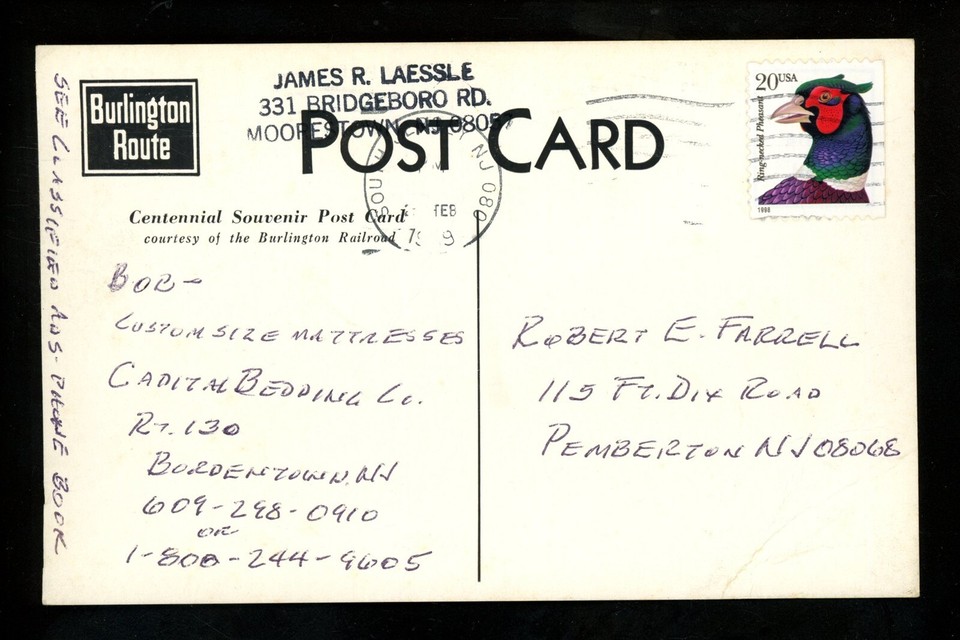 JAMES R. LAESSLE
331 BRIDGEBORO RD.
MOORESTOWN, NJ 08057
Burlington
Route
POST CARD
Centennial Souvenir Post Card
courtesy of the Burlington Railroad
NJ 080
FEB
20USA
Ring-necked Pheasant
1998
BOB-
CUSTOM SIZE MATTRESSES
CAPITAL BEDDING CO.
RT. 130
BORDENTOWN, NJ
609-298-0910
OR
1-800-244-9605
SEE CLASSIFIED ADS - PHONE BOOK
ROBERT E. FARRELL
115 FT. DIX ROAD
PEMBERTON NJ 08068